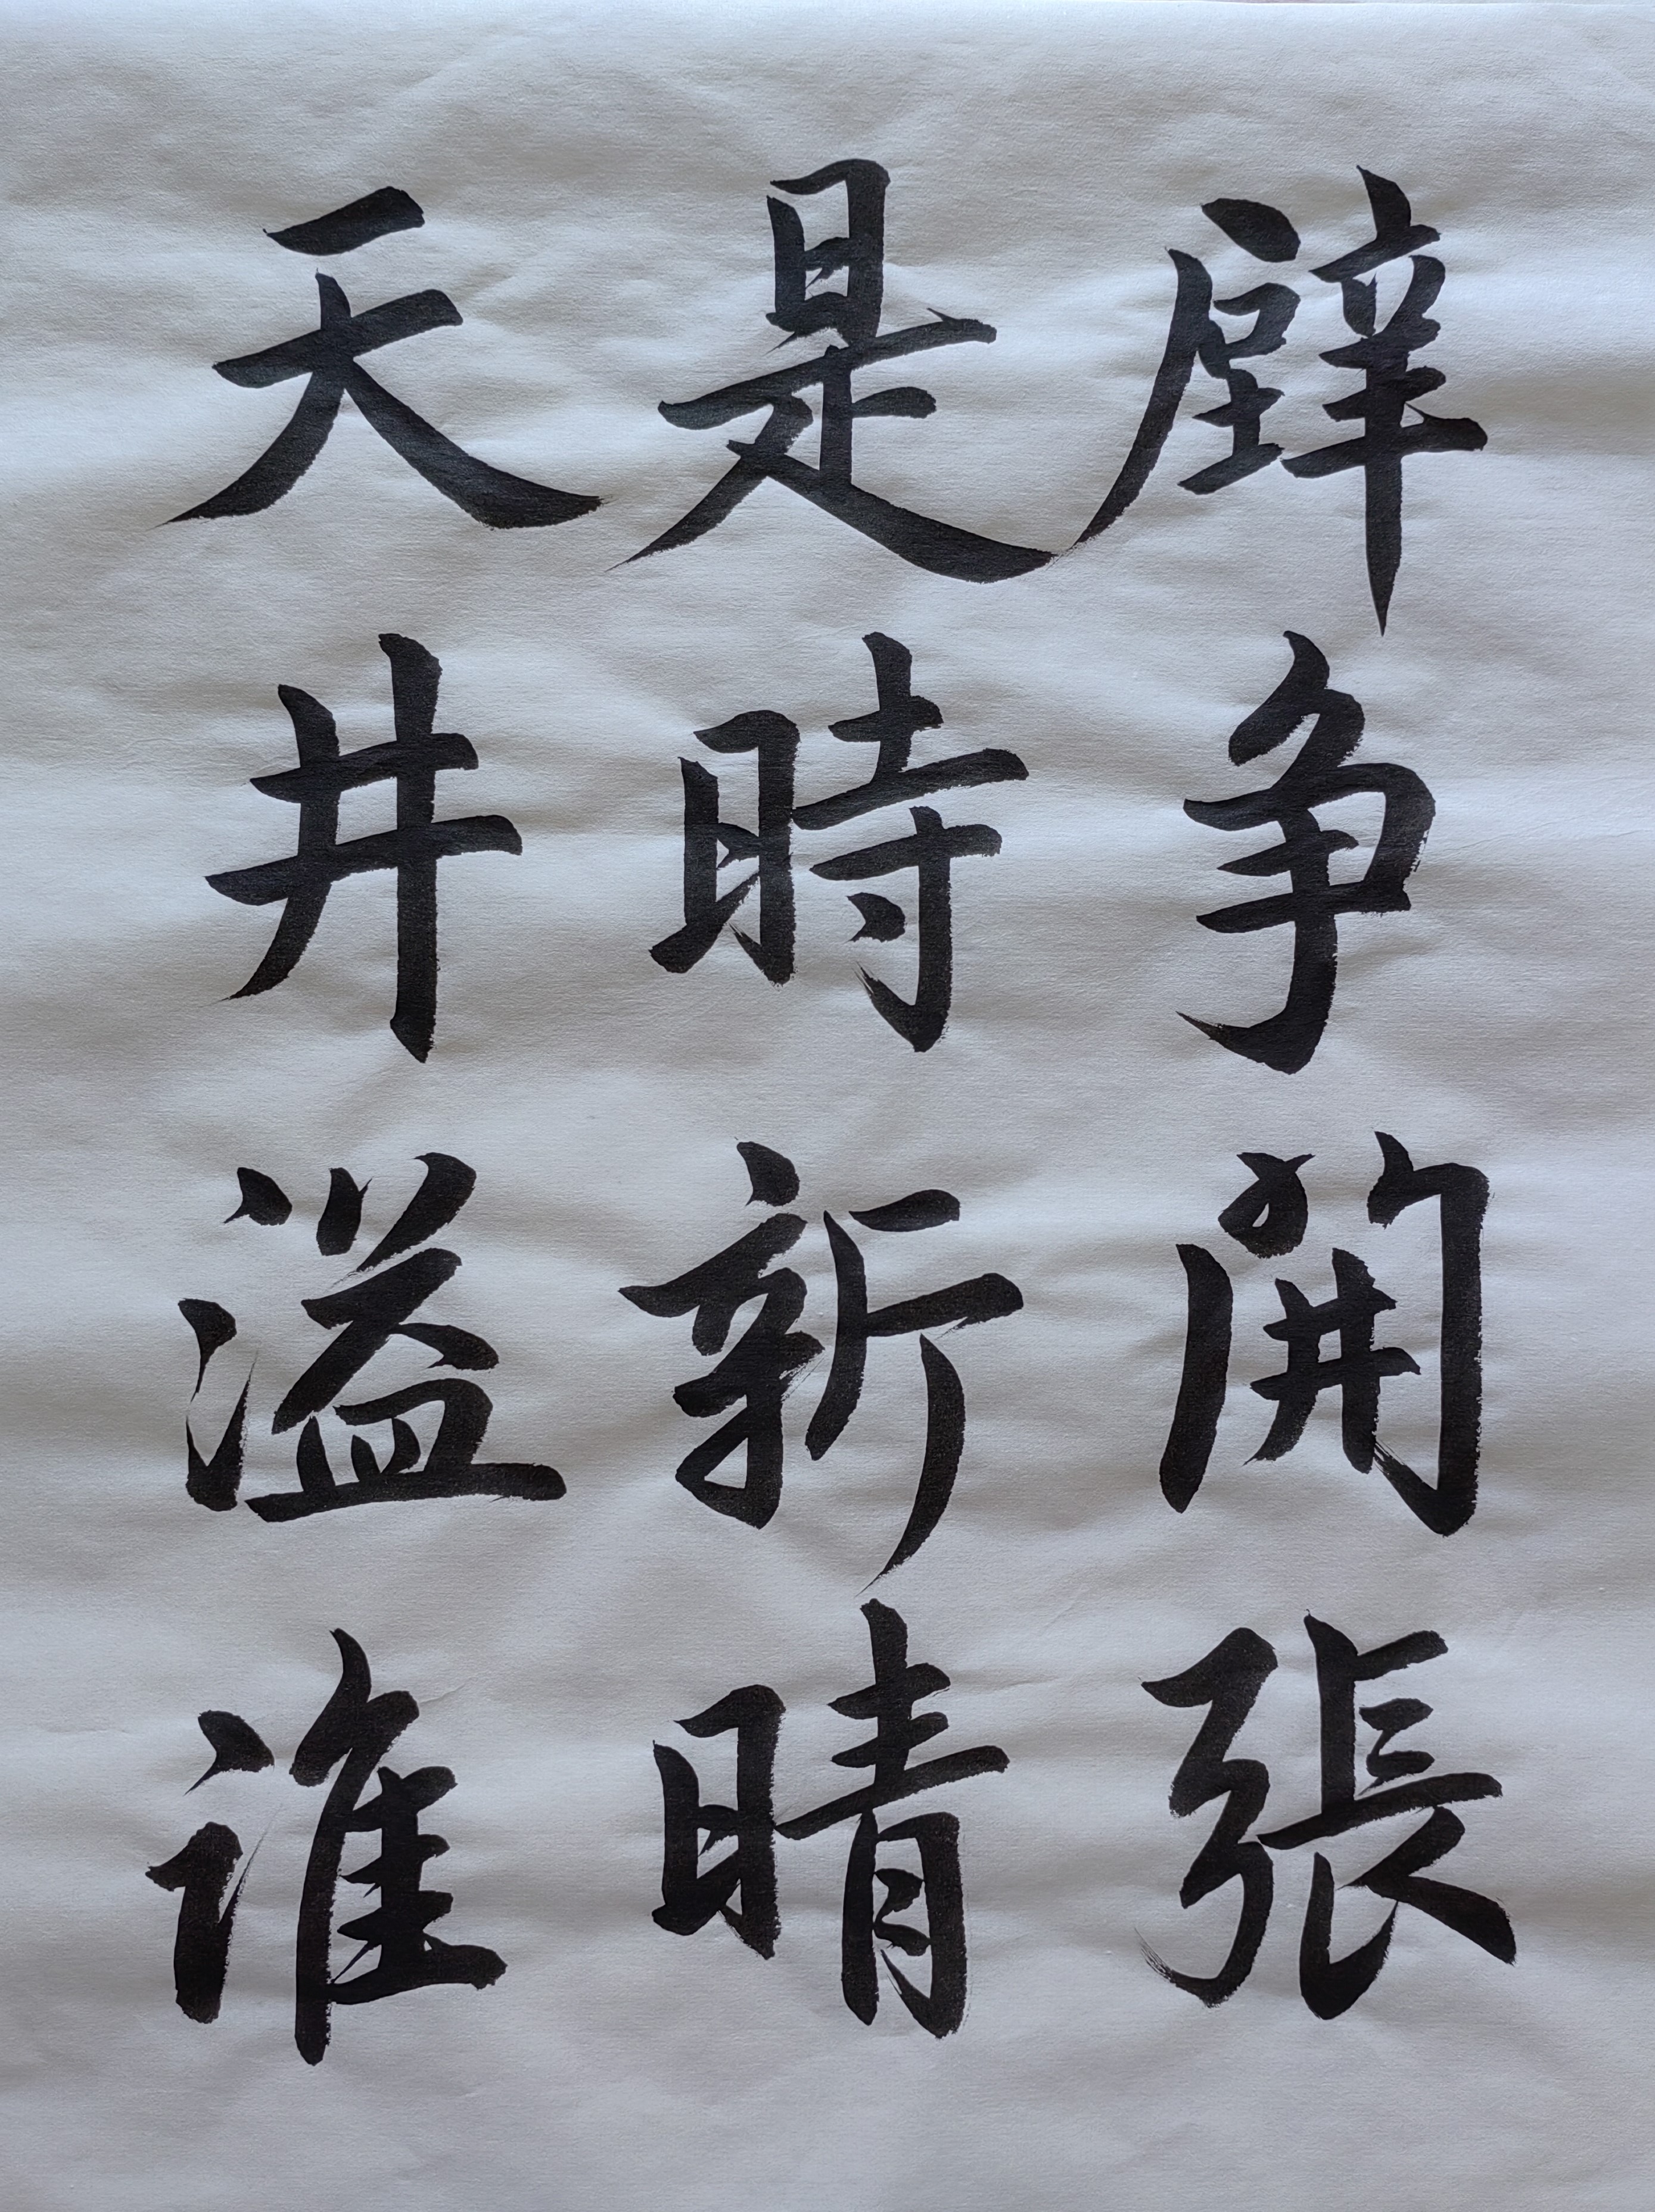 壁争開張
是時新晴
天井溢誰